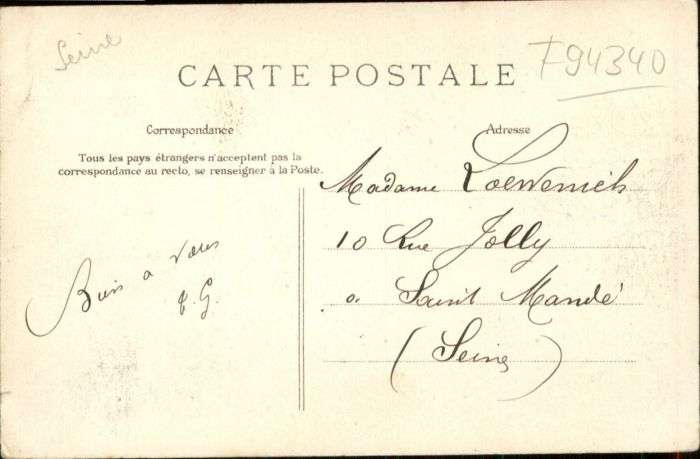 Seine
F94340
CARTE POSTALE
Correspondance
Adresse
Tous les pays étrangers n'acceptent pas la
correspondance au recto, se renseigner à la Poste.
Madame
10 Rue Jolly
à Saint Mandé
(Seine)
Bien à vous
G.